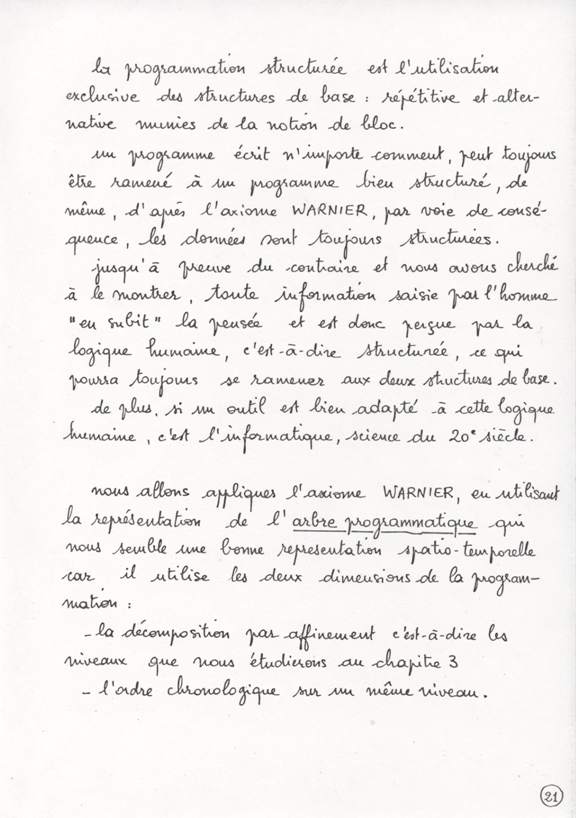 la programmation structurée est l'utilisation
exclusive des structures de base : répétitive et alter-
native munies de la notion de bloc.
un programme écrit n'importe comment, peut toujours
être ramené à un programme bien structuré, de
même, d'après l'axiome WARNIER, par voie de consé-
quence, les données sont toujours structurées.
jusqu'à preuve du contraire et nous avons cherché
à le montrer, toute information saisie par l'homme
"en subit" la pensée et est donc perçue par la
logique humaine, c'est-à-dire structurée, ce qui
pourra toujours se ramener aux deux structures de base.
de plus, si un outil est bien adapté à cette logique
humaine, c'est l'informatique, science du 20e siècle.
nous allons appliquer l'axiome WARNIER, en utilisant
la représentation de l'arbre programmatique qui
nous semble une bonne representation spatio-temporelle
car il utilise les deux dimensions de la program-
mation :
- la décomposition par affinement c'est-à-dire les
niveaux que nous étudierons au chapitre 3
- l'ordre chronologique sur un même niveau.
21